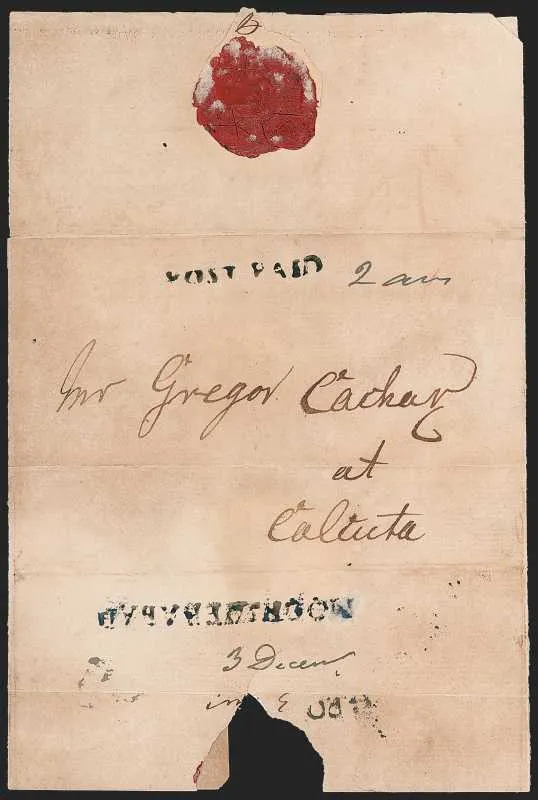 POST PAID 2 ans
Mr Gregor Cachar
at
Calcuta
MOORSHEDABAD
3 Decem